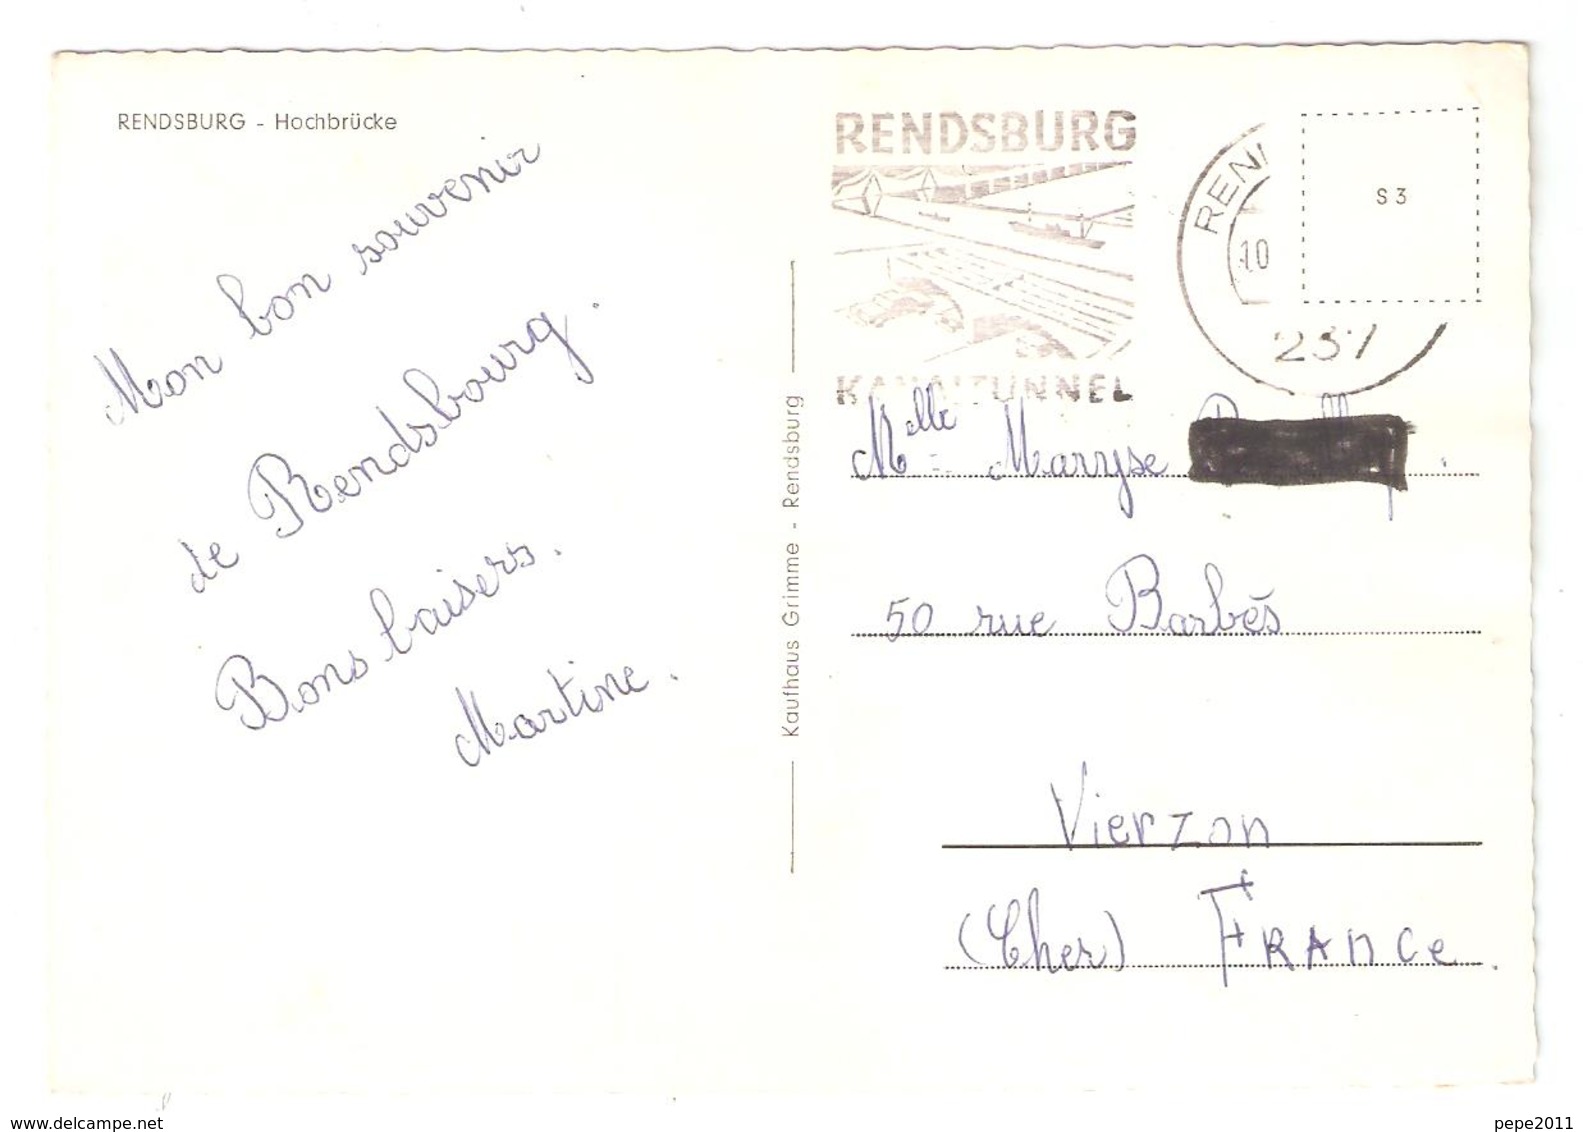 RENDSBURG - Hochbrücke
Mon bon souvenir
de Rendsbourg.
Bons baisers.
Martine.
Kaufhaus Grimme - Rendsburg
RENDSBURG
KANALTUNNEL
REN
10
237
S 3
Melle Maryse
50 rue Barbès
Vierzon
(Cher) FRANCe.
www.delcampe.net
pepe2011